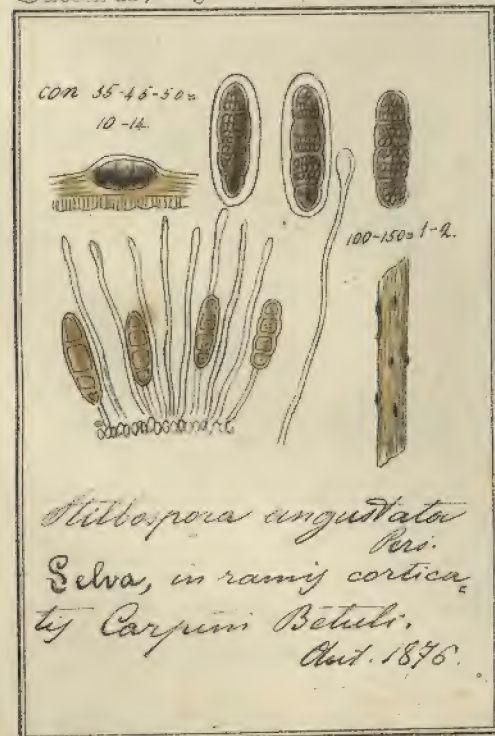 con 35-45-50=
10-14.
100-150=1-2.
Stilbospora angustata
Pers.
Selva, in ramis cortica„
tis Carpini Betuli.
Aut. 1876.